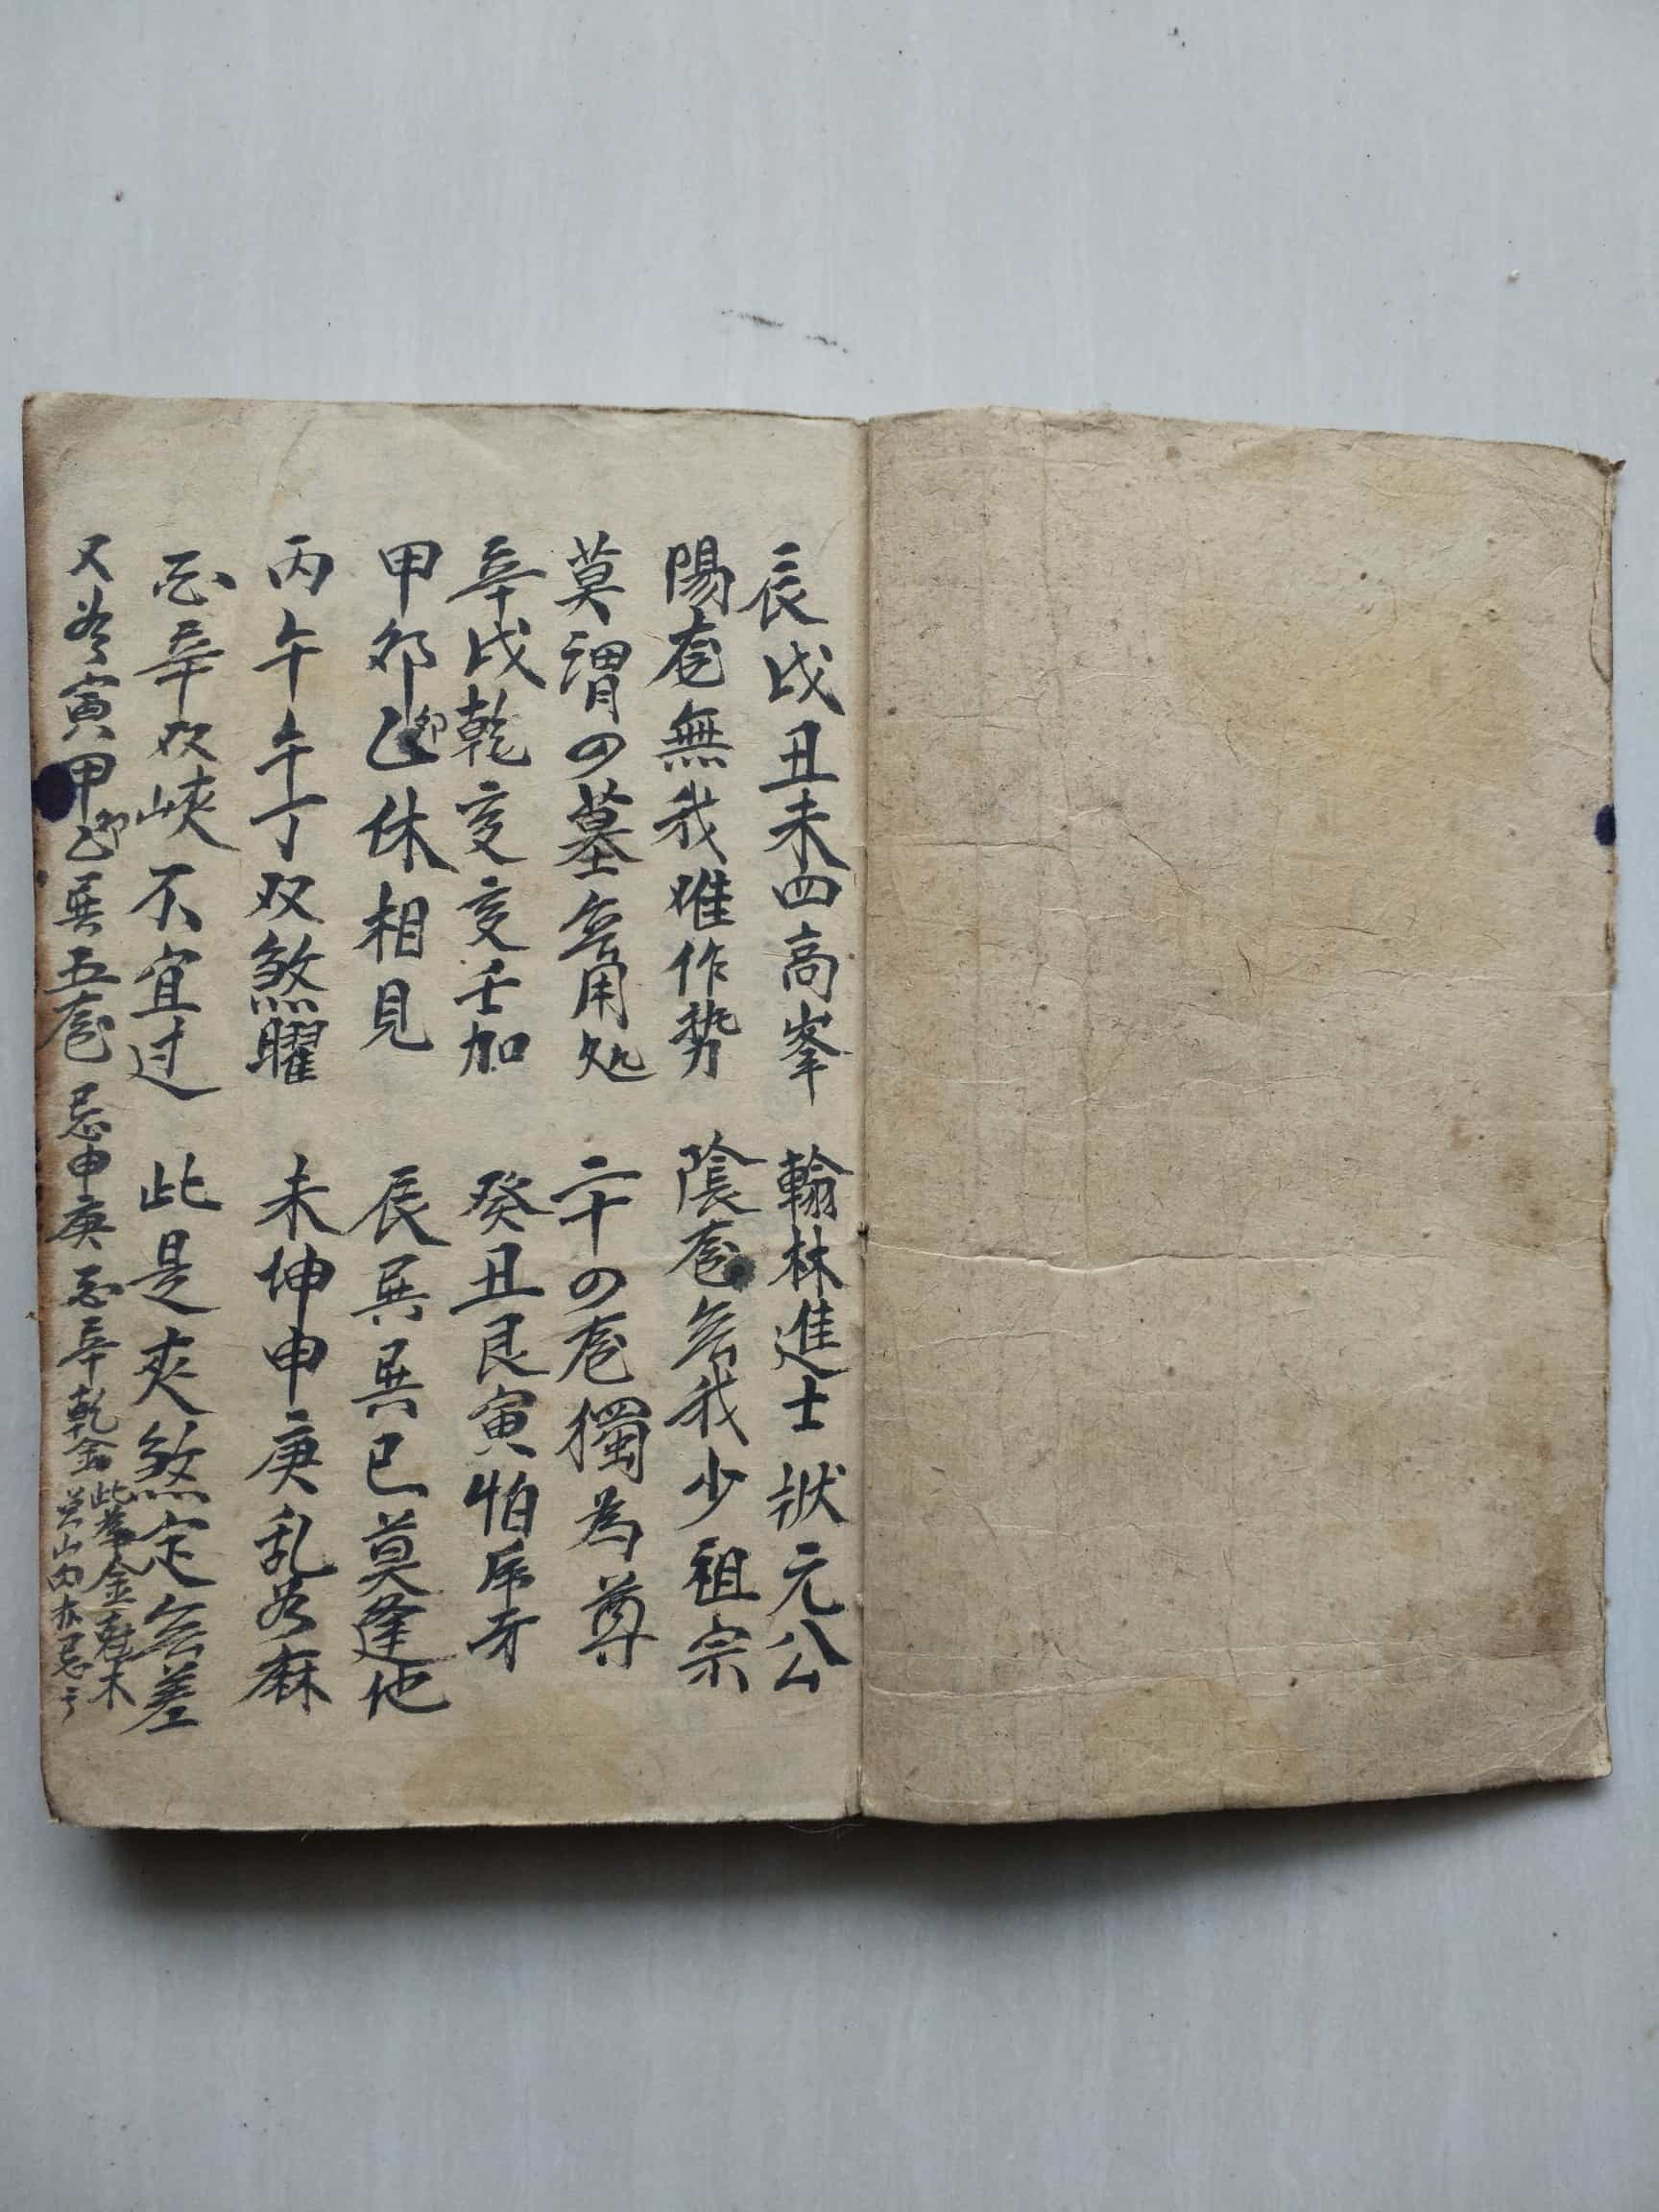 辰戌丑未四高峯 翰林進士狀元公
陽龙無我难作势 陰龙无我少祖宗
莫谓四墓无用処 二十四龙獨為尊
辛戌乾亥亥壬加 癸丑艮寅怕
甲卯乙卯休相見 辰巽巽巳莫逢他
丙午午丁双煞曜 未坤申庚乱为麻
酉辛双峡不宜过 此是夾煞定无差
又为寅甲卯乙巽五龙忌申庚酉辛乾金 此為金剋木
山内亦忌